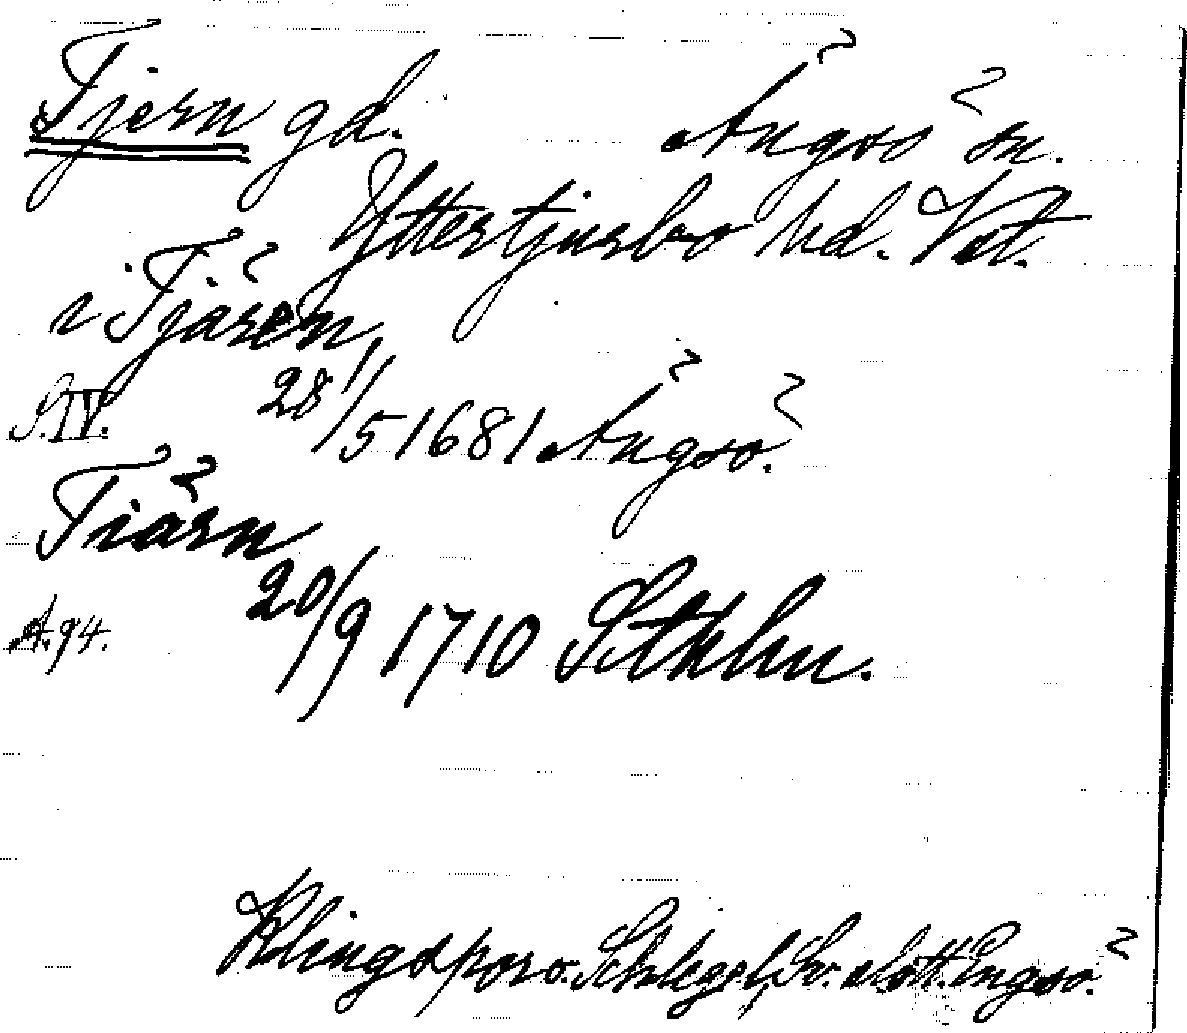 Tjern gd. Ängsö sn.
Yttertjurbo hd. Vst.
i Tjären
S.IV. 28/5 1681 Ängsö.
Tiärn
A.94. 20/9 1710 Sthlm.
Klingspor o. Schlegel, Sv. slott. Engsö.